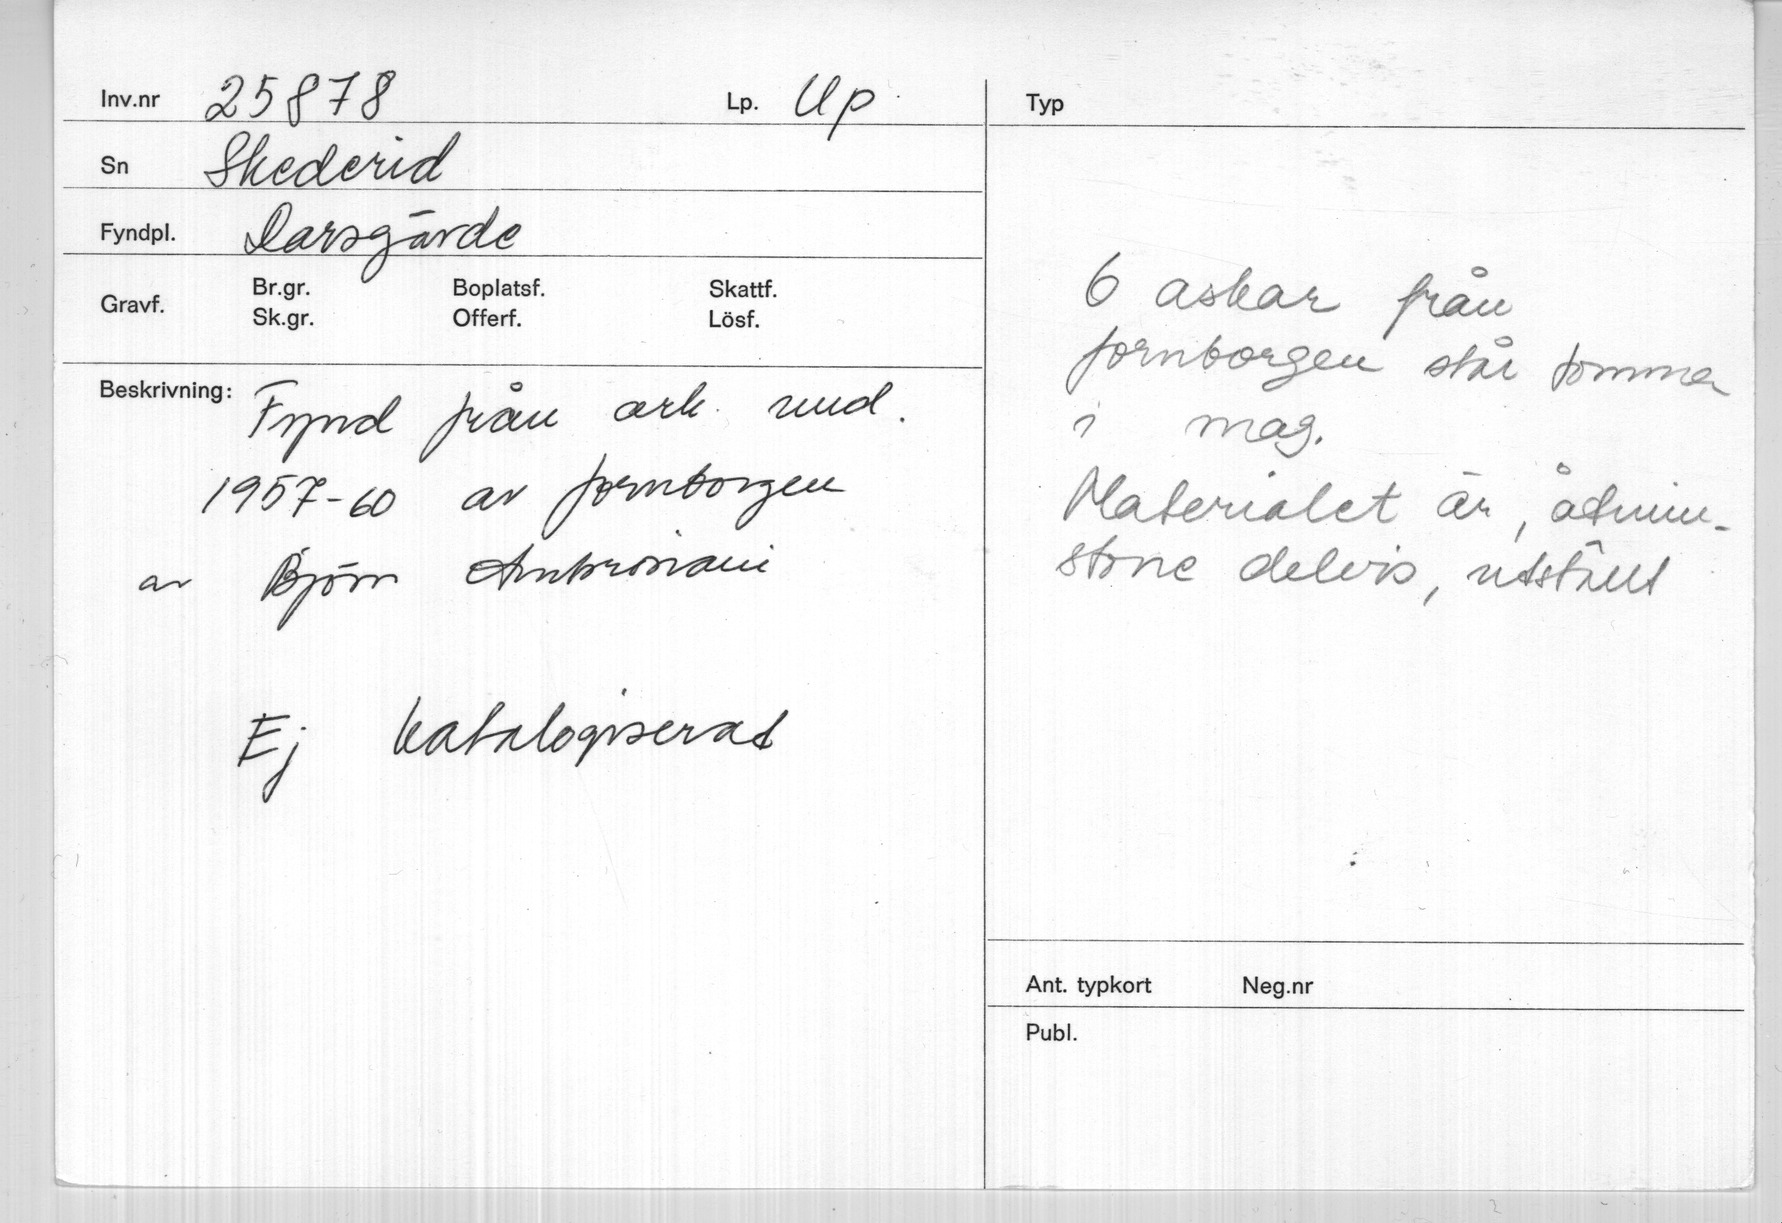 Inv.nr 25878 Lp. Up
Sn Skederid
Fyndpl. Darsgärde
Gravf. Br.gr. Boplatsf. Skattf.
Sk.gr. Offerf. Lösf.
Beskrivning: Fynd från ark. und.
1957-60 av fornborgen
av Björn Ambrosiani
Ej katalogiserat
Typ
6 askar från
fornborgen står tomma
i mag.
Materialet är, åtmin-
stone delvis, utställt
Ant. typkort Neg.nr
Publ.